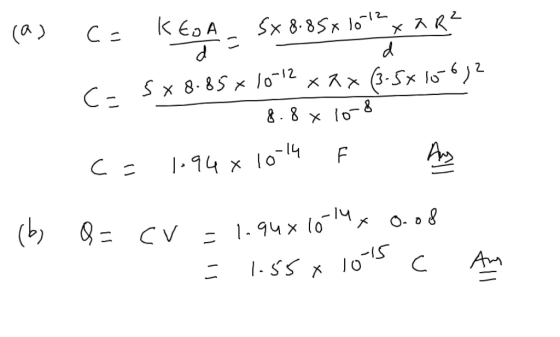 (a) C = K ε₀ A / d = 5 x 8.85 x 10⁻¹² x π R² / d
C = 5 x 8.85 x 10⁻¹² x π x (3.5 x 10⁻⁶)² / 8.8 x 10⁻⁸
C = 1.94 x 10⁻¹⁴ F Ans
(b) Q = CV = 1.94 x 10⁻¹⁴ x 0.08
= 1.55 x 10⁻¹⁵ C Ans